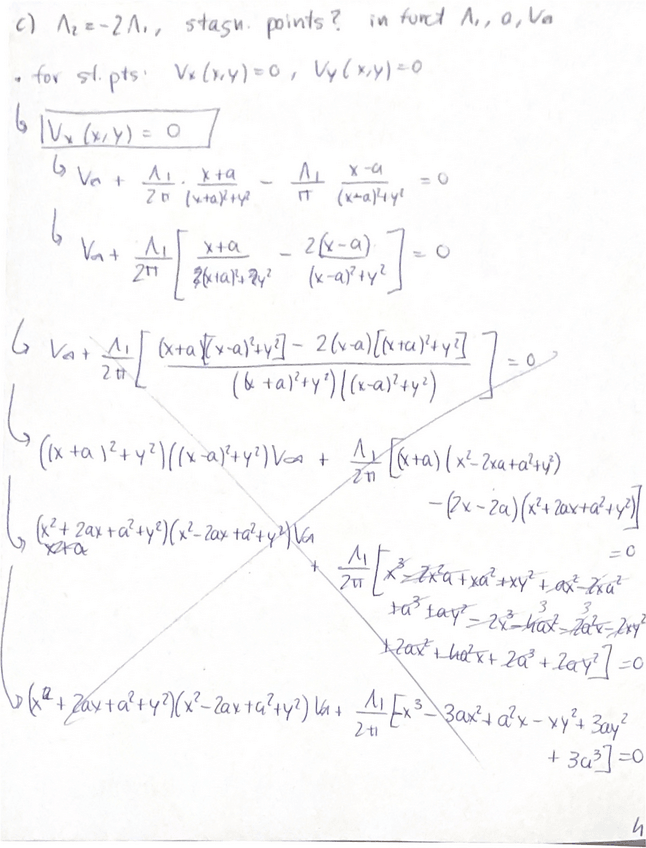 c) Λ₂ = -2Λ₁, stagn. points? in funct Λ₁, a, V∞
• for st. pts: Vx(x,y)=0, Vy(x,y)=0
↳ Vx(x,y) = 0
↳ V∞ + Λ₁/2π · (x+a)/((x+a)²+y²) - Λ₁/π (x-a)/((x-a)²+y²) = 0
↳ V∞ + Λ₁/2π [ (x+a)/((x+a)²+y²) - 2(x-a)/((x-a)²+y²) ] = 0
↳ V∞ + Λ₁/2π [ ((x+a)[(x-a)²+y²] - 2(x-a)[(x+a)²+y²]) / (((x+a)²+y²)((x-a)²+y²)) ] = 0
↳ ((x+a)²+y²)((x-a)²+y²)V∞ + Λ₁/2π [(x+a)(x²-2xa+a²+y²)
-(2x-2a)(x²+2ax+a²+y²)]
= 0
↳ (x²+2ax+a²+y²)(x²-2ax+a²+y²)V∞
+ Λ₁/2π [x³-2x²a+xa²+xy²+ax²-2xa²
+a³+ay²-2x³-4ax²-2a²x-2xy²
+2ax²+4a²x+2a³+2ay²] = 0
↳ (x²+2ax+a²+y²)(x²-2ax+a²+y²)V∞ + Λ₁/2π [-x³-3ax²+a²x-xy²+3ay²
+3a³] = 0
4